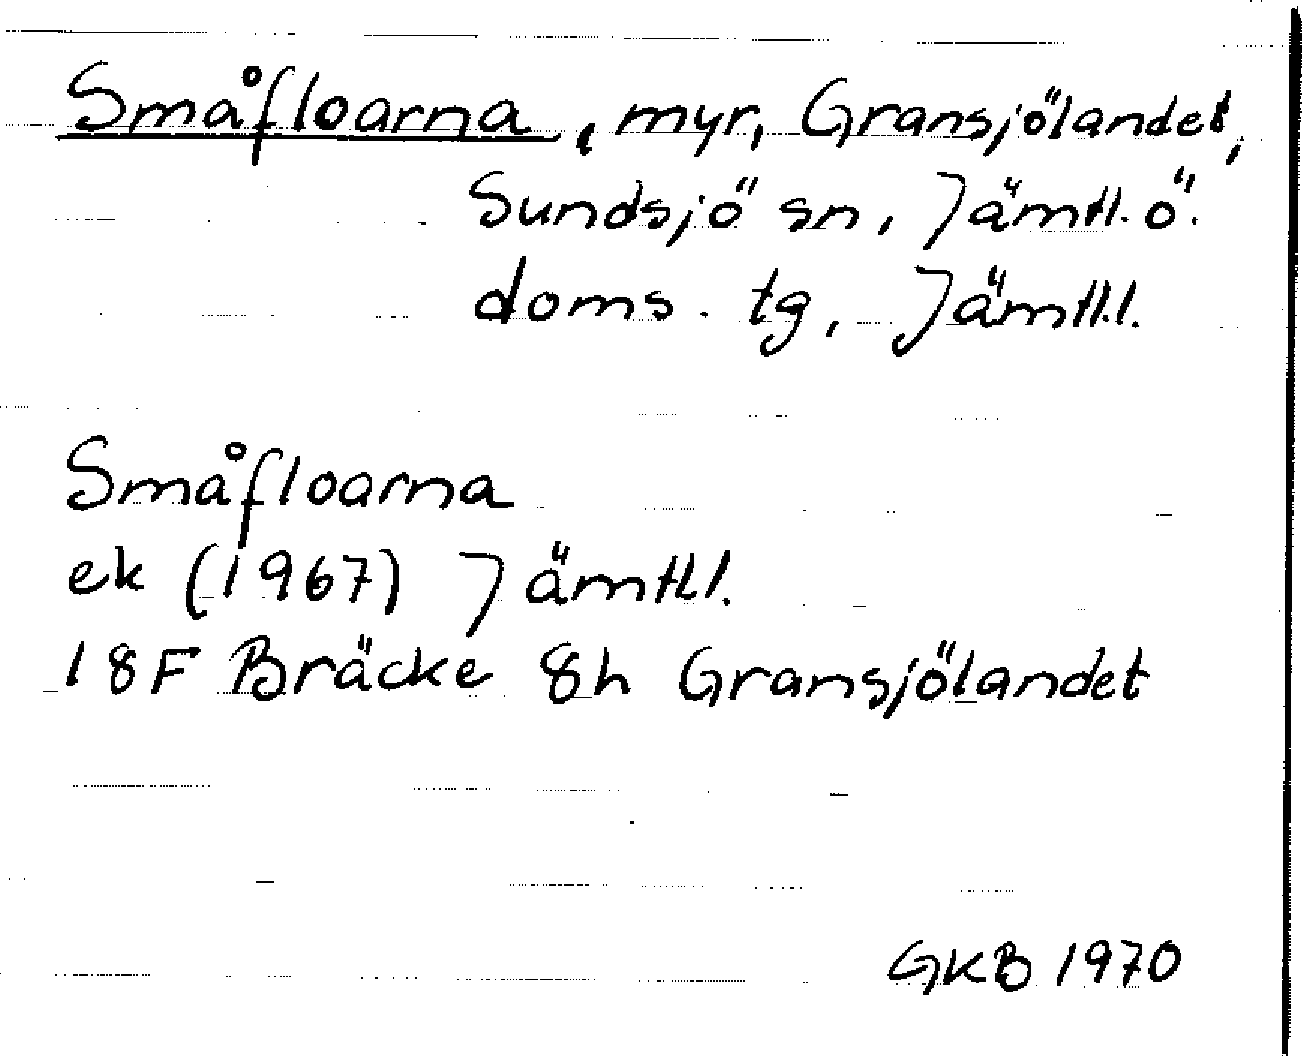 Småfloarna, myr, Gransjölandet,
Sundsjö sn, Jämtl. ö.
doms. tg, Jämtl.l.
Småfloarna
ek (1967) Jämtl.l.
18F Bräcke 8h Gransjölandet
GKB 1970